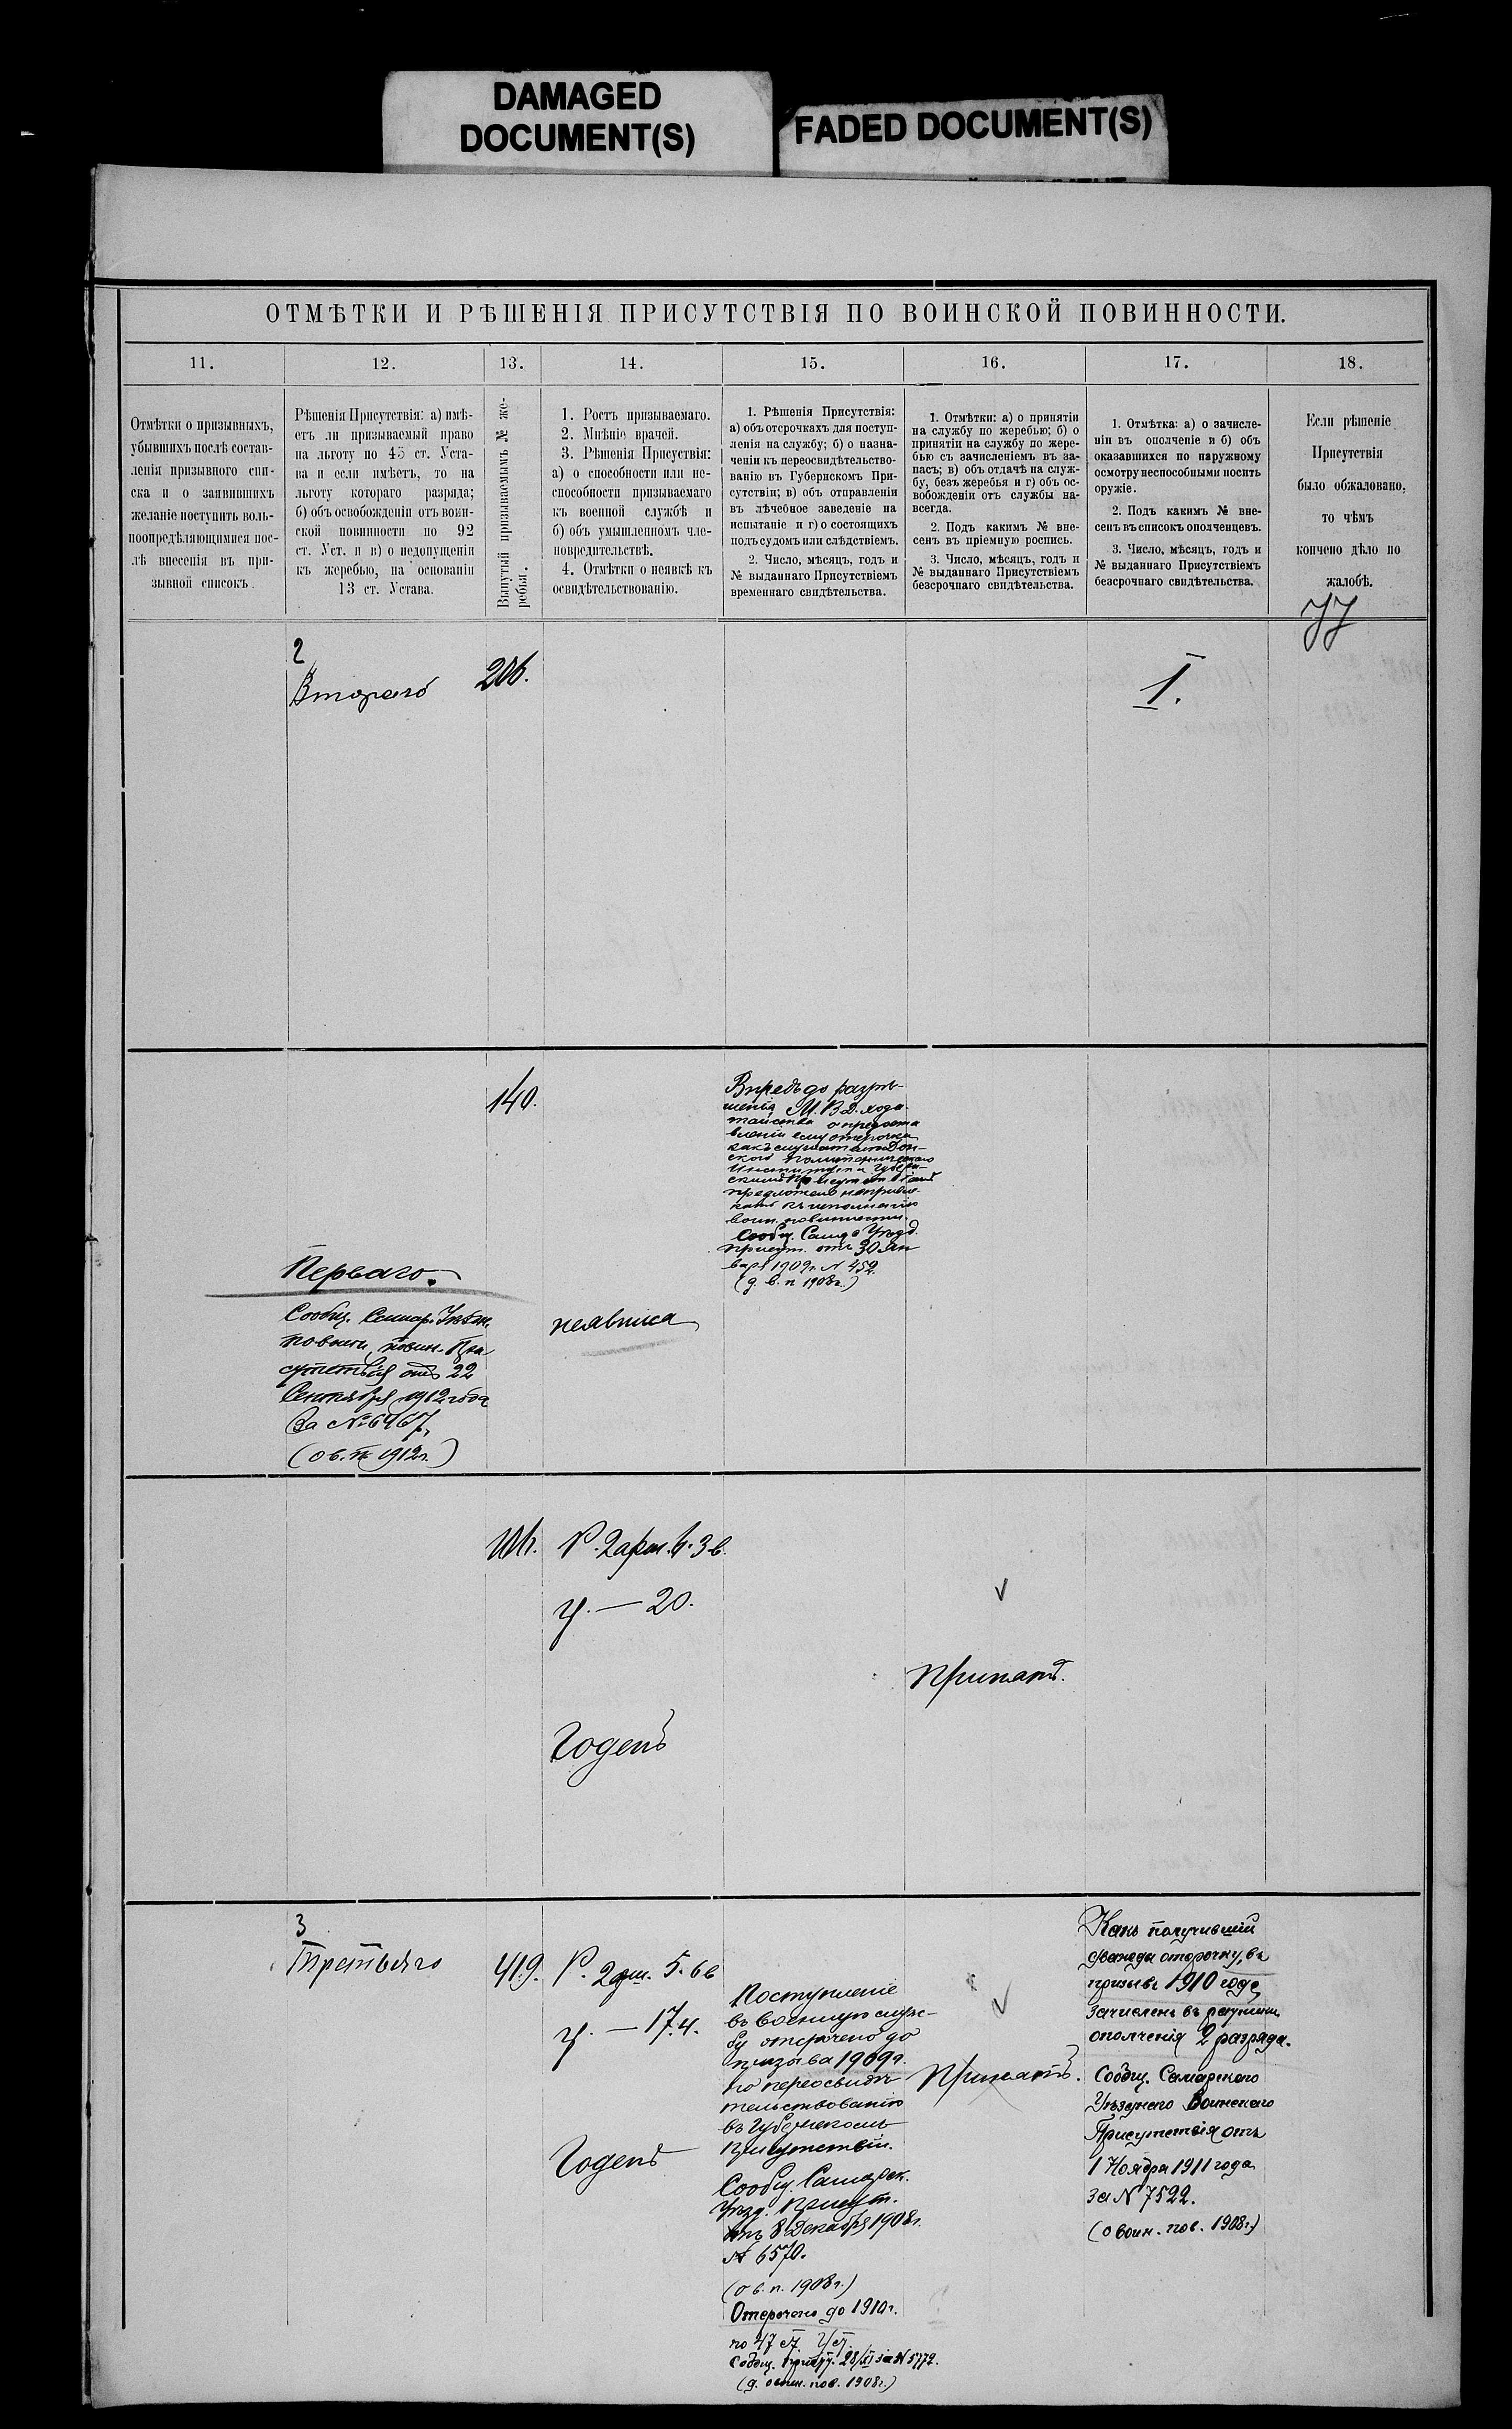 DAMAGED
DOCUMENT(S)
FADED DOCUMENT(S)
ОТМѢТКИ И РѢШЕНІЯ ПРИСУТСТВІЯ ПО ВОИНСКОЙ ПОВИННОСТИ.
11.
12.
13.
14.
15.
16.
17.
18.
Отмѣтки о призывныхъ,
убывшихъ послѣ состав-
ленія призывного спи-
ска и о заявившихъ
желаніе поступить воль-
ноопредѣляющимися пос-
лѣ внесенія въ при-
зывной списокъ.
Рѣшенія Присутствія: а) имѣ-
етъ ли призываемый право
на льготу по 45 ст. Уста-
ва и если имѣетъ, то на
льготу котораго разряда;
б) объ освобожденіи отъ воин-
ской повинности по 92
ст. Уст. и в) о недопущеніи
къ жеребью, на основаніи
13 ст. Устава.
Вынутый призываемымъ № же-
ребья.
1. Ростъ призываемаго.
2. Мнѣніе врачей.
3. Рѣшенія Присуствія:
а) о способности или не-
способности призываемаго
къ военной службѣ и
б) объ умышленномъ чле-
новредительствѣ.
4. Отмѣтки о неявкѣ къ
освидѣтельствованію.
1. Рѣшенія Присутствія:
а) объ отсрочкахъ для поступ-
ленія на службу; б) о назна-
ченіи къ переосвидѣтельство-
ванію въ Губернскомъ При-
сутствіи; в) объ отправленіи
въ лѣчебное заведеніе на
испытаніе и г) о состоящихъ
подъ судомъ или слѣдствіемъ.
2. Число, мѣсяцъ, годъ и
№ выданнаго Присутствіемъ
временнаго свидѣтельства.
1. Отмѣтки: а) о принятіи
на службу по жеребью; б) о
принятіи на службу по жере-
бью съ зачисленіемъ въ за-
пасъ; в) объ отдачѣ на служ-
бу, безъ жеребья и г) объ ос-
вобожденіи отъ службы на-
всегда.
2. Подъ какимъ № вне-
сенъ въ пріемную роспись.
3. Число, мѣсяцъ, годъ и
№ выданнаго Присутствіемъ
безсрочнаго свидѣтельства.
1. Отмѣтка: а) о зачисле-
ніи въ ополченіе и б) объ
оказавшихся по наружному
осмотру неспособными носить
оружіе.
2. Подъ какимъ № вне-
сенъ въ списокъ ополченцевъ.
3. Число, мѣсяцъ, годъ и
№ выданнаго Присутствіемъ
безсрочнаго свидѣтельства.
Если рѣшеніе
Присутствія
было обжаловано,
то чѣмъ
кончено дѣло по
жалобѣ.
2
Втораго
206.
I.
140.
Впредь до разрѣ-
шенія М.В.Д. хода-
тайства о предоста
вленіи ему отсрочки
какъ слушателю Дон-
ского Политехническаго
Института Губерн-
скимъ Присутствіемъ
предложено не привле-
кать къ исполненію
воин. повинности.
Сообщ. Самар. Уѣзд.
присут. отъ 30 Ян
варя 1909 г. № 452.
(д. в. п. 1908 г.)
Перваго.
Сообщ. Самар. Уѣздн.
по воин. повин. При
сутствія отъ 22
Сентября 1912 года
За № 6967,
(о в. п. 1912 г.)
неявился
Р. 2 арш. 6. 3 в.
г. — 20.
Годенъ
Принятъ.
3
Третьяго
419.
Р. 2 арш. 5. 6 в
г. — 17. ч.
Годенъ
Поступленіе
въ военную служ-
бу отсрочено до
призыва 1909 г.
по переосвидѣ
тельствованію
въ Губернскомъ
Присутствіи.
Сообщ. Самарск.
Уѣзд. Присут.
отъ 8 Декабря 1908 г.
№ 6570.
(о в. п. 1908 г.)
Отсрочено до 1910 г.
по 47 ст. Уст.
Сообщ. присут. 28/XI за № 5772.
(д. о воин. пов. 1908 г.)
Принятъ.
Какъ получившій
дважды отсрочку, въ
призывъ 1910 года
зачисленъ въ ратники
ополченія 2 разряда.
Сообщ. Самарскаго
Уѣзднаго Воинскаго
Присутствія отъ
1 Ноября 1911 года
за № 7522.
(о воин. пов. 1908 г.)